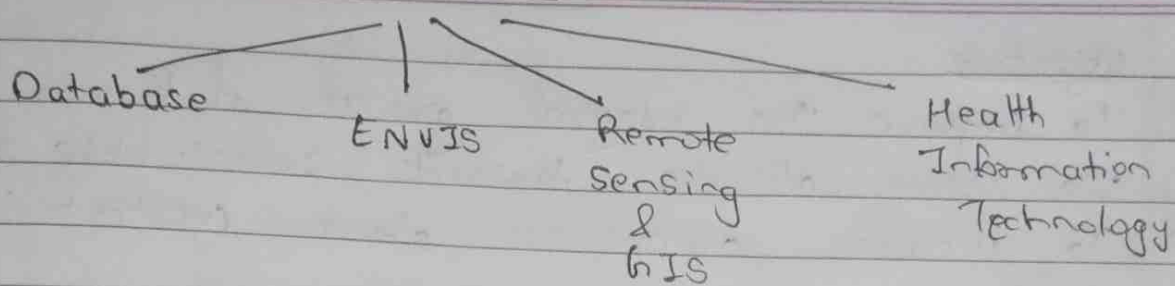 Database
ENVIS
Remote
sensing
&
GIS
Health
Information
Technology